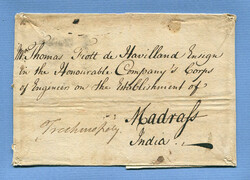 Mr. Thomas Fiott de Havilland Ensign
in the Honourable Company's Corps
of Engineers on the Establishment of
Madrass
Trichinopoly
India